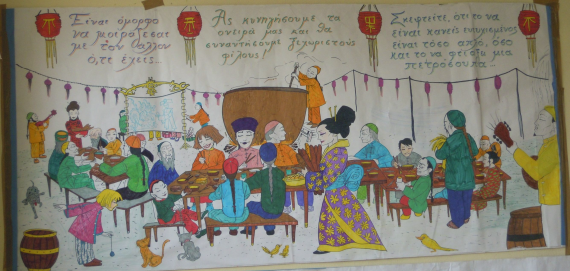 Είναι όμορφο
να μοιράζεσαι
με τον άλλον
ό,τι έχεις...
Ας κυνηγήσουμε τα
όνειρά μας και θα
συναντήσουμε ξεχωριστούς
φίλους!
Σκεφτείτε, ότι το να
είναι κανείς ευτυχισμένος
είναι τόσο απλό, όσο
και το να φτιάξει μια
πετρόσουπα...